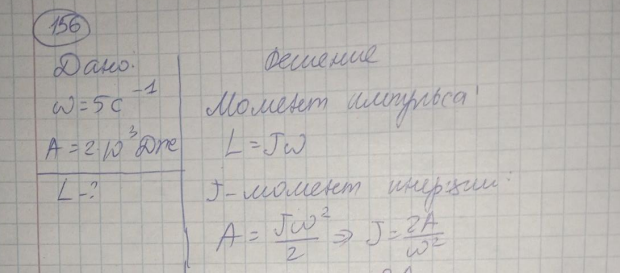 156
Дано:
ω=5с⁻¹
A=2·10³Дж
L-?
Решение
Момент импульса:
L=Jω
J-момент инерции:
A=Jω²/2 ⇒ J=2A/ω²